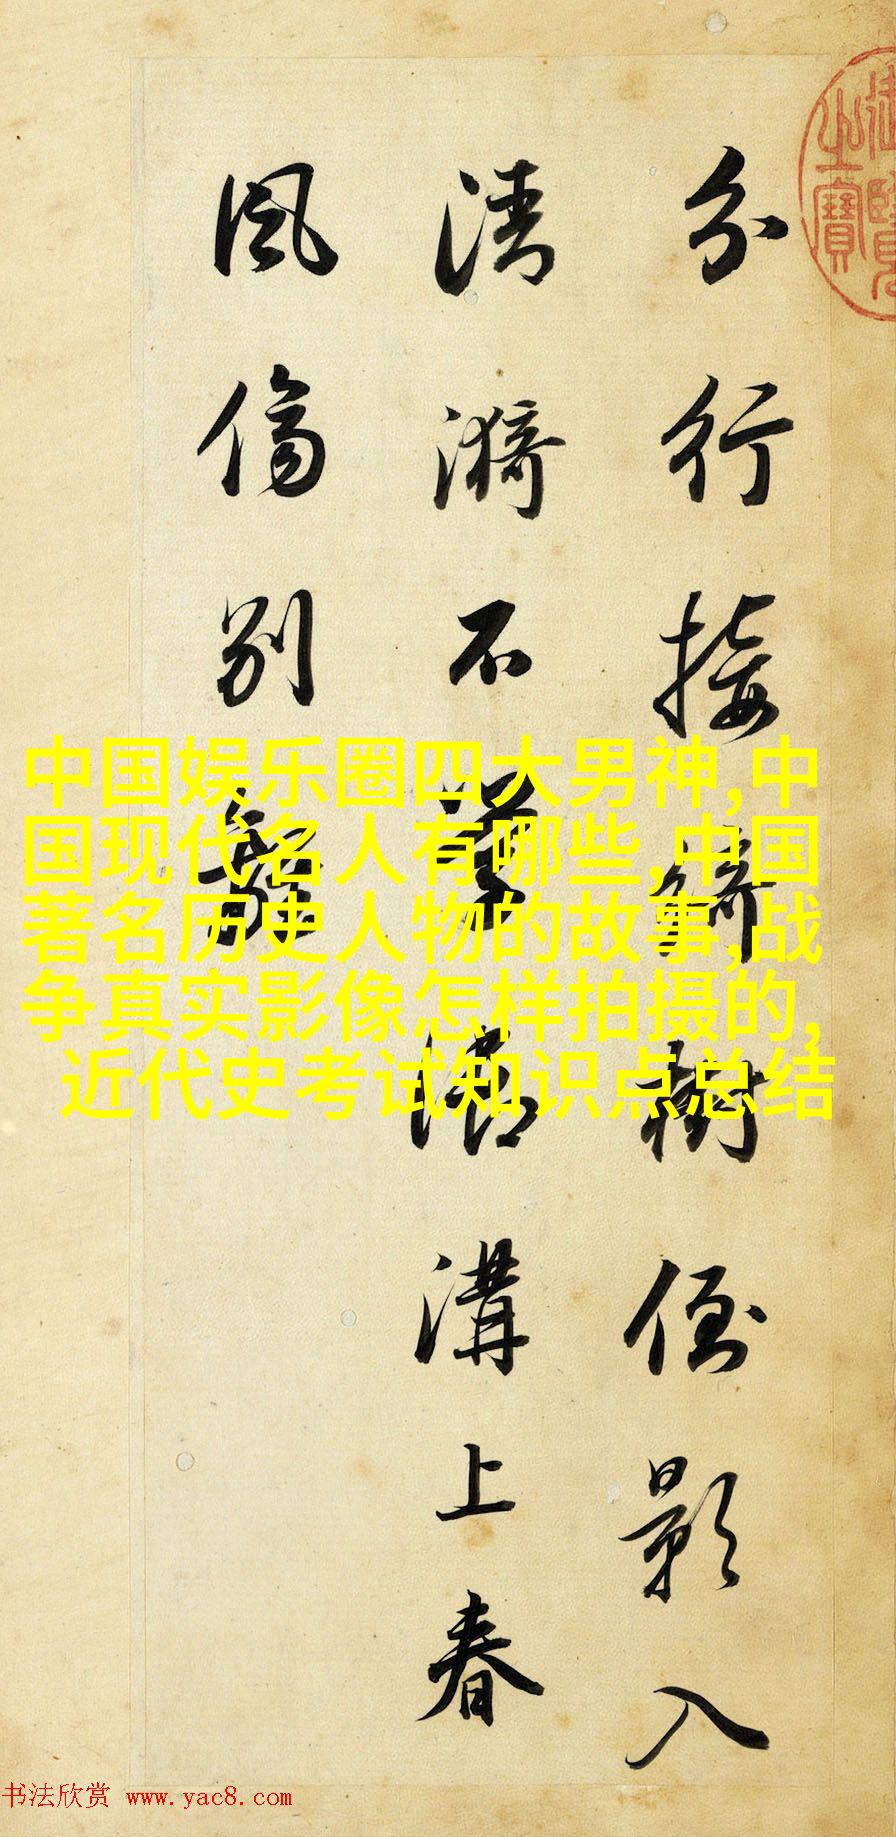 分行接綺樹倒影入
清漪不學御溝上春
風傷別離
御覽之寶
中国娱乐圈四大男神,中
国现代名人有哪些,中国
著名历史人物的故事,战
争真实影像怎样拍摄的,
近代史考试知识点总结
书法欣赏 www.yac8.com